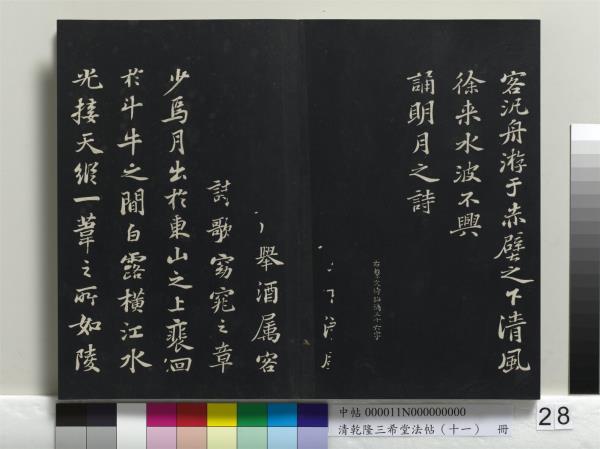 客汎舟游于赤壁之下清風
徐来水波不興
誦明月之詩
右文待詔補三十六字
舉酒属客
歌窈窕之章
少焉月出於東山之上裵回
於斗牛之間白露橫江水
光接天縱一葦之所如陵
中帖 000011N000000000
清乾隆三希堂法帖(十一) 冊
28